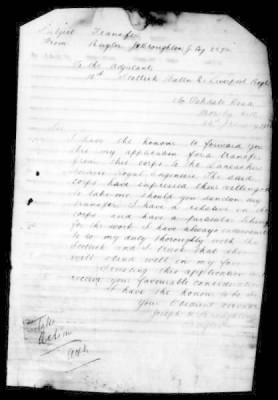 Subject Transfer
From Bugler J. Broughton J. Coy 2272
To the Adjutant
Scottish Battn L. Liverpool Regt
Oakdale Road
Sir
I have the honour to forward you
this my application for a transfer
from this corps to the Lancashire
Royal Engineers. The said
corps have expressed their willingness
to take me should you sanction my
transfer. I have a relative in the
corps and have a particular
for the work. I have always endeavoured
to do my duty thoroughly with the
Scottish and I trust that
will stand well in my favour.
Trusting this application will
receive your favourable consideration
I have the honour to be
Your Obedient servant
Joseph